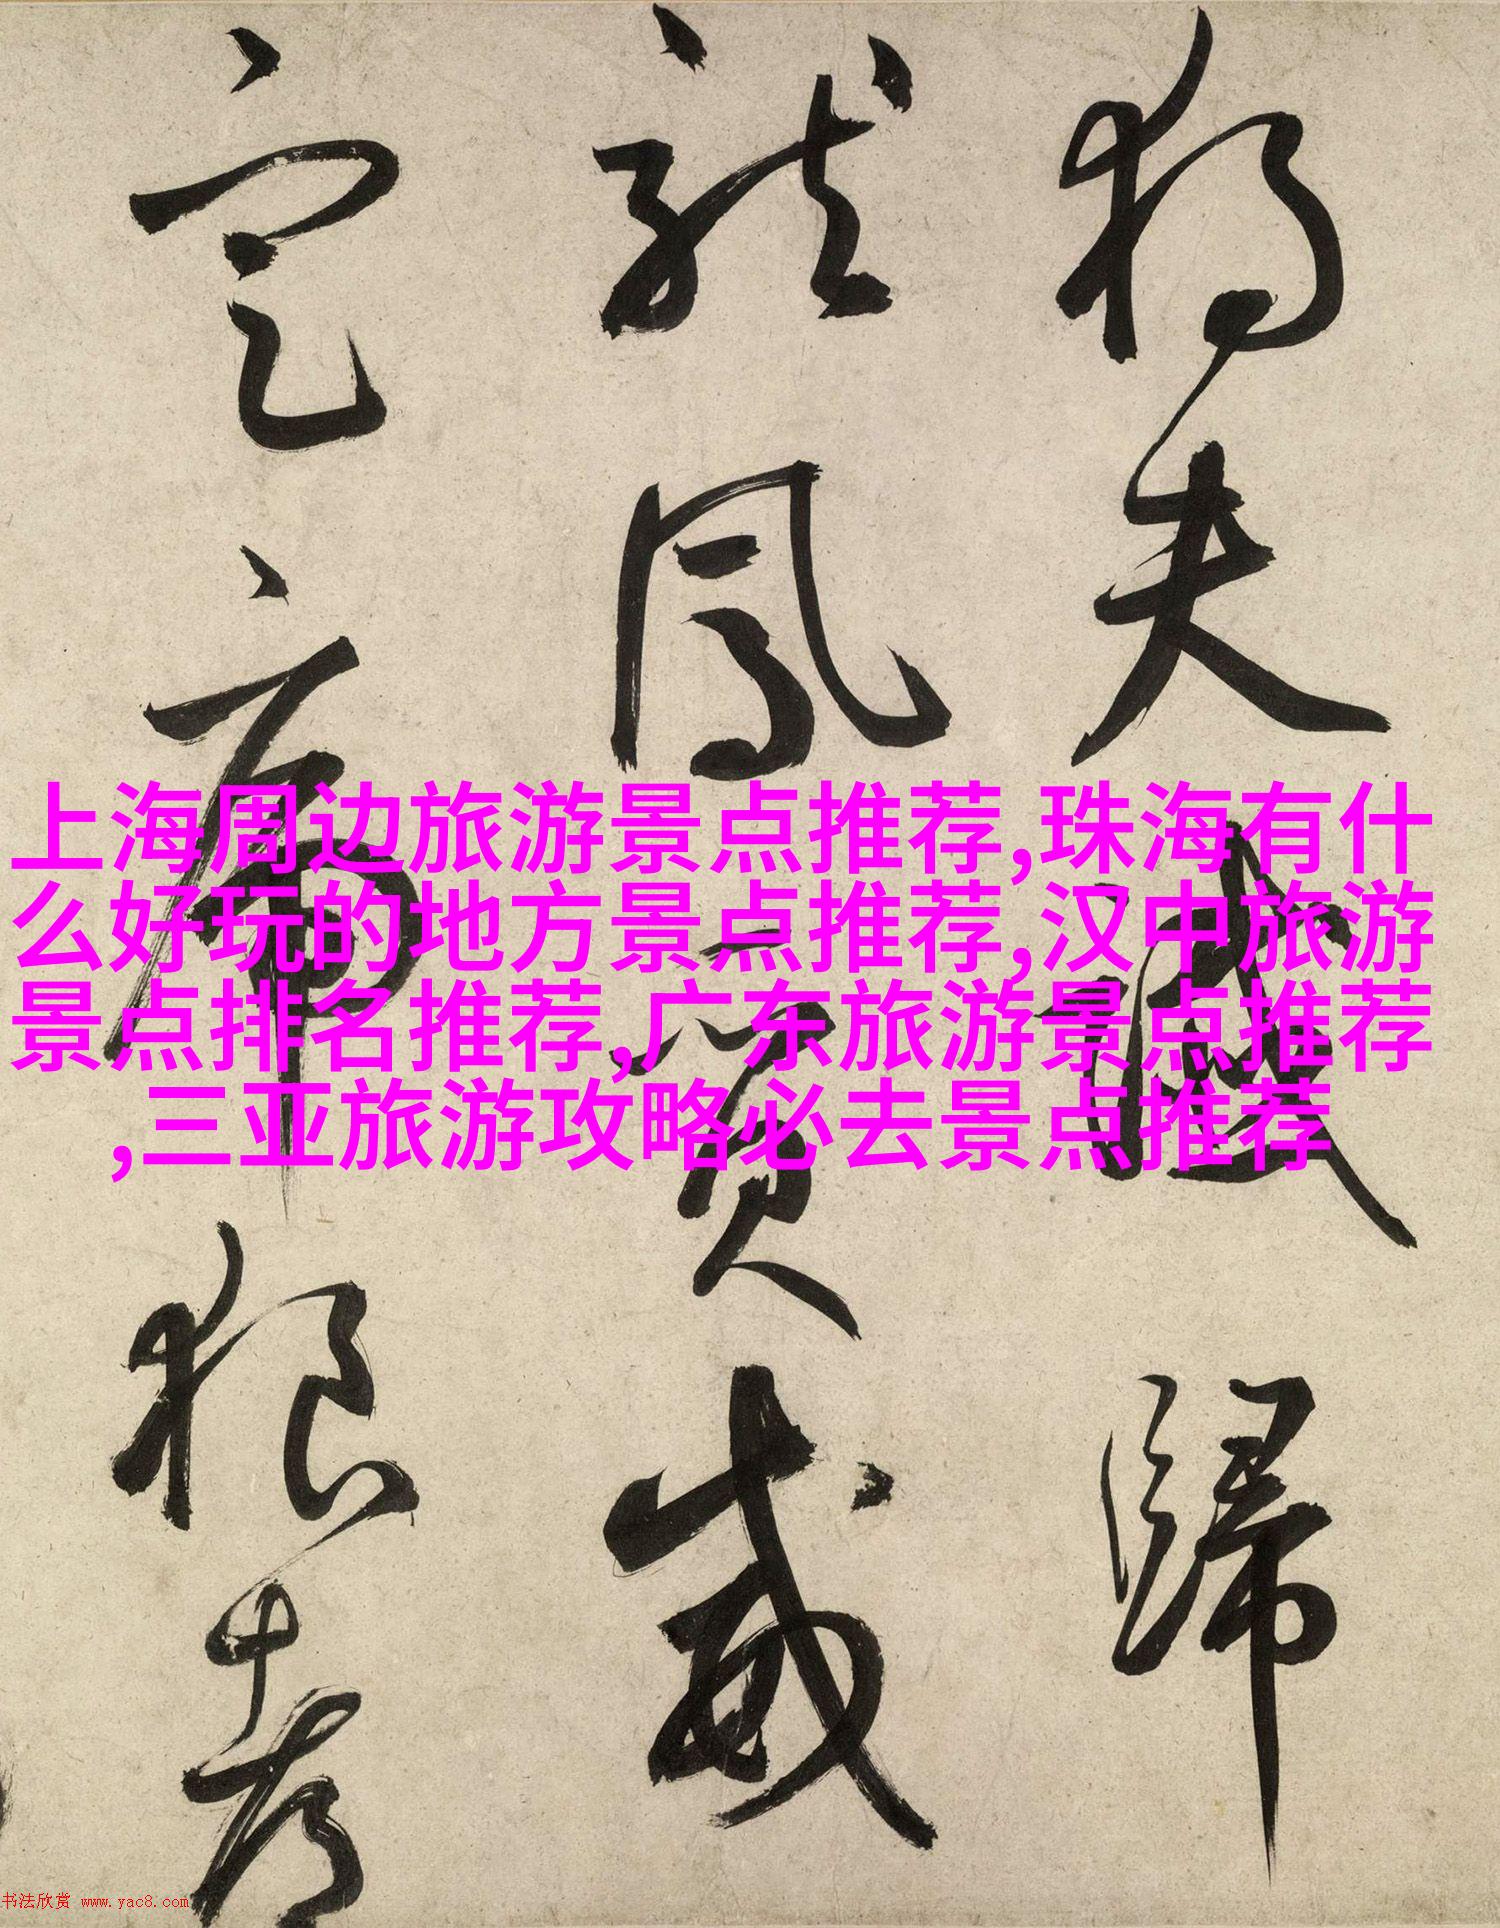 獨夫讖歸
龍鳳質威
定虎狼都
上海周边旅游景点推荐,珠海有什
么好玩的地方景点推荐,汉中旅游
景点排名推荐,广东旅游景点推荐
,三亚旅游攻略必去景点推荐
书法欣赏 www.yac8.com